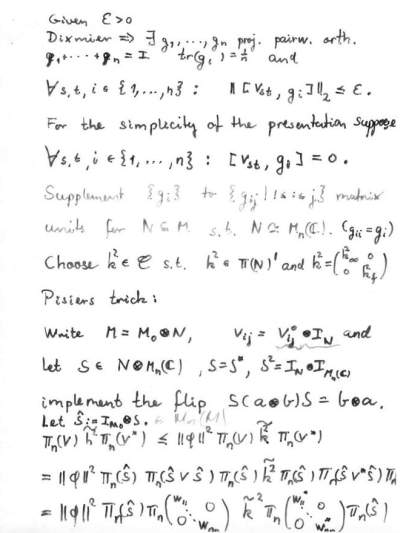 Given ε>0
Dixmier ⇒ ∃ g₁,...,gₙ proj. pairw. orth.
g₁+···+gₙ = I tr(gᵢ) = 1/n and
∀s,t,i ∈ {1,...,n} : ‖[V_st, gᵢ]‖₂ ≤ ε.
For the simplicity of the presentation suppose
∀s,t,i ∈ {1,...,n} : [V_st, gᵢ] = 0.
Supplement {gᵢ} to {g_ij | 1≤i≤j} matrix
units for N ⊆ M s.t. N ≅ Mₙ(ℂ). (g_ii = gᵢ)
Choose k² ∈ 𝒞 s.t. k² ∈ π(N)' and k² = (k²_∞ 0 0 k²_f)
Pisiers trick:
Write M = M₀⊗N, V_ij = V_ij°⊗I_N and
let S ∈ N⊗Mₙ(ℂ), S=S*, S² = I_N⊗I_{Mₙ(ℂ)}
implement the flip S(a⊗b)S = b⊗a.
Let Ŝ := I_{M₀}⊗S. ∈ Mₙ(M)
πₙ(V) h̃² πₙ(V*) ≤ ‖φ‖² πₙ(V) k̃² πₙ(V*)
= ‖φ‖² πₙ(Ŝ) πₙ(Ŝ V Ŝ) πₙ(Ŝ) k̃² πₙ(Ŝ) πₙ(Ŝ V* Ŝ) π
= ‖φ‖² πₙ(Ŝ) πₙ(W₁₁ 0 ⋱ 0 Wₙₙ) k̃² πₙ(W₁₁* 0 ⋱ 0 Wₙₙ*) πₙ(Ŝ)